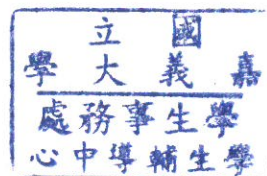 國立
嘉義大學
學生事務處
學生輔導中心